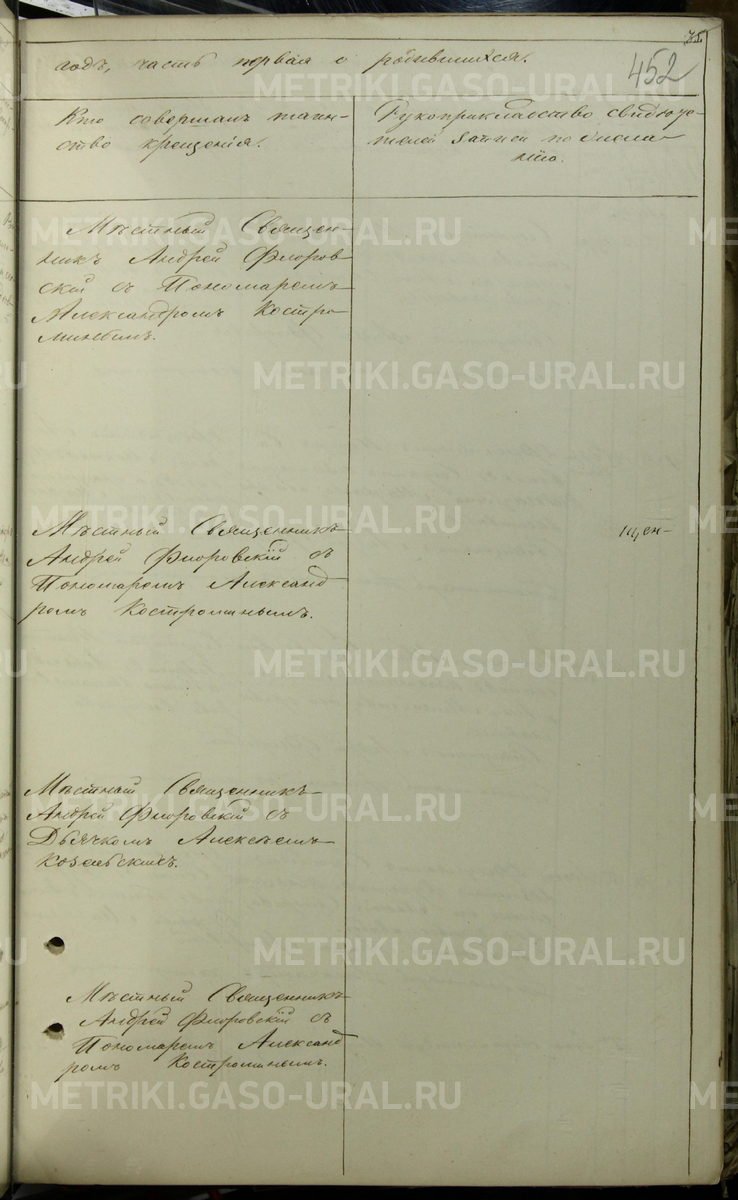 75.
годъ, часть первая о родившихся.
452
Кто совершалъ таин-
ство крещенія.
Рукоприкладство свидѣте-
телей записи по жела-
нію.
Мѣстный Священ-
никъ Андрей Флоров
скій съ Пономаремъ
Александромъ Костро
минымъ.
Мѣстный Священникъ
Андрей Флоровскій съ
Пономаремъ Александ
ромъ Костроминымъ.
Мѣстный Священникъ
Андрей Флоровскій съ
Дьячкомъ Алексѣемъ
Козельскимъ.
Мѣстный Священникъ
Андрей Флоровскій съ
Пономаремъ Александ
ромъ Костроминымъ.
METRIKI.GASO-URAL.RU